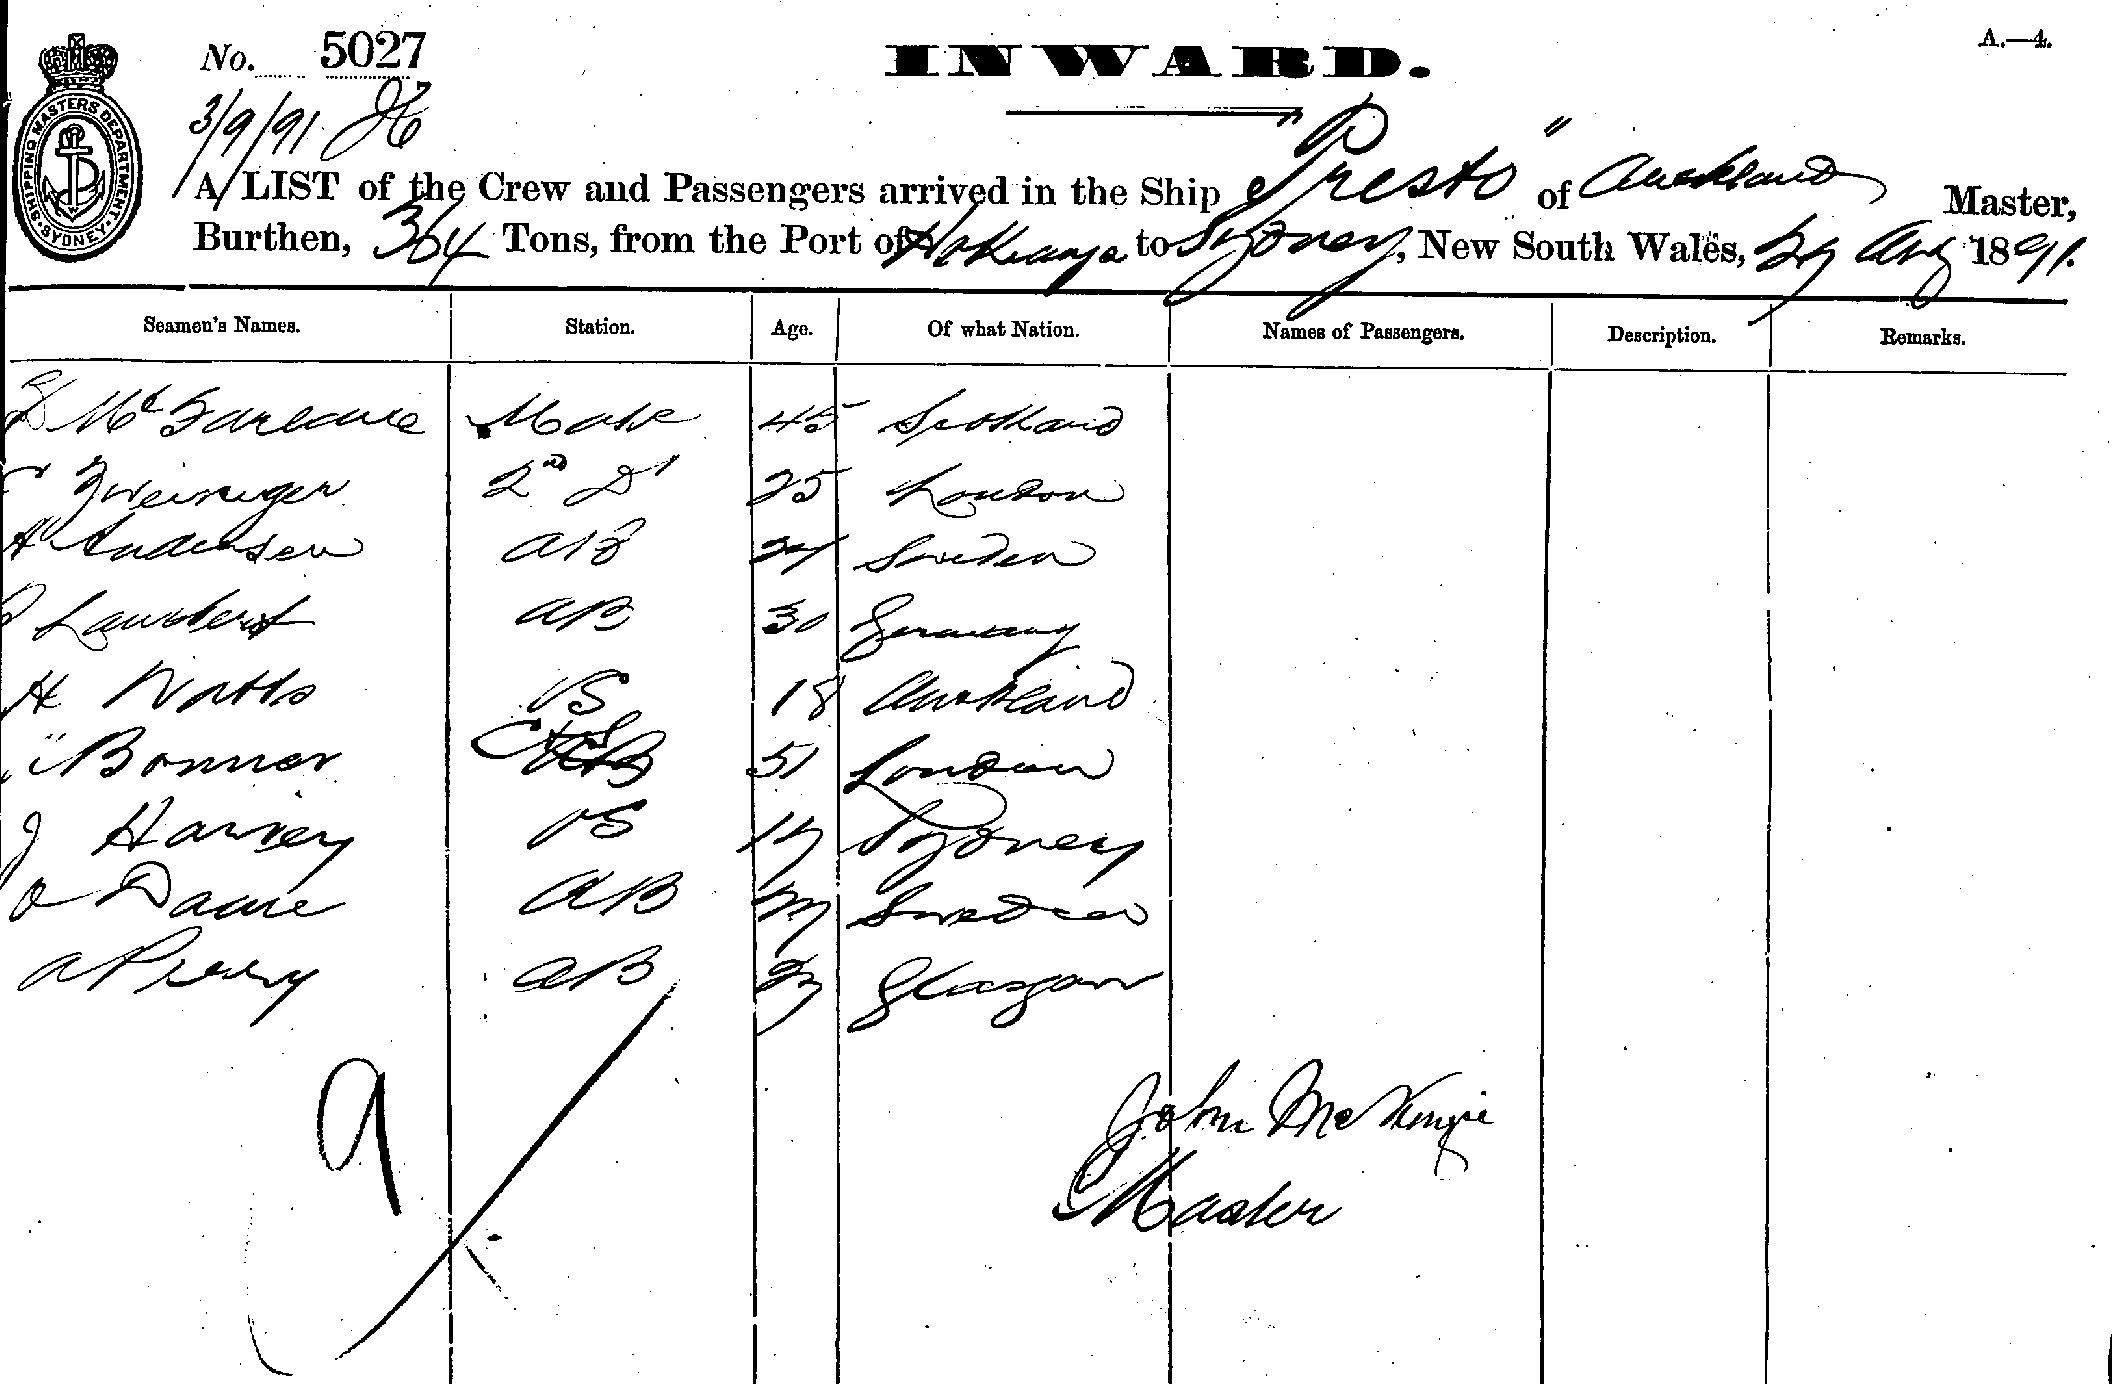 No. 5027
INWARD.
A.—4.
SHIPPING MASTERS DEPARTMENT SYDNEY
3/9/91
A LIST of the Crew and Passengers arrived in the Ship "Presto" of Auckland Master,
Burthen, 364 Tons, from the Port of Hokianga to Sydney, New South Wales, 29 Aug 1891.
Seamen's Names. Station. Age. Of what Nation. Names of Passengers. Description. Remarks.
McFarlane Mate 45 Scotland
2nd Do 25 London
A Andersen AB 24 Sweden
Lambert AB 30 Germany
H Watts OS 18 Auckland
Bonner C&S 51 London
J Harvey OS 17 Sydney
O AB Sweden
A Perry AB 27 Glasgow
9
John McKenzie
Master